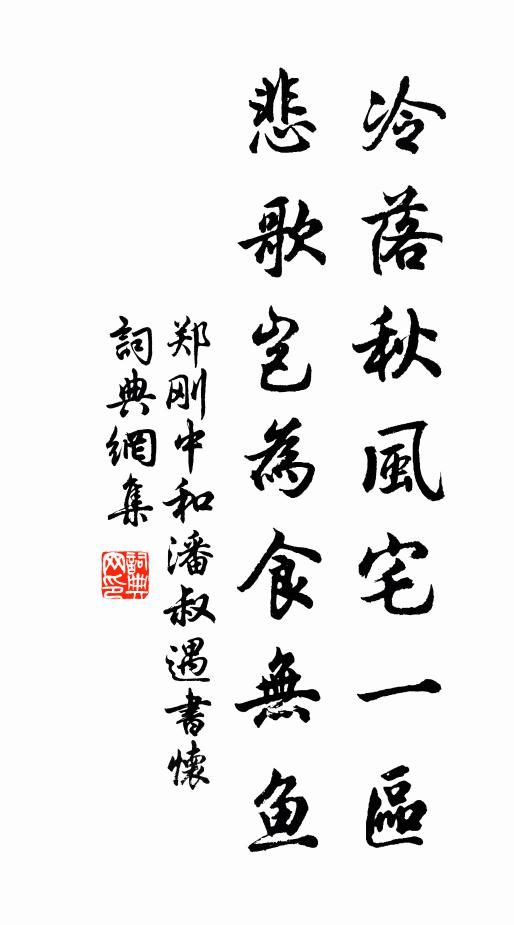 冷落秋風宅一區
悲歌豈為食無魚
郑刚中和潘叔遇書懷
詞典網集
詞典网印